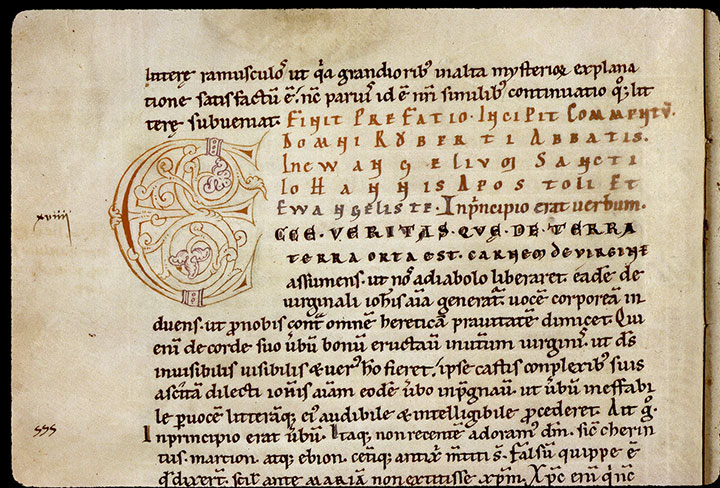 litterę ramusculos ut qa grandiorib; in alta mysterioꝝ explana
tione satisfactū ē. nc̄ paruis id ē nr̄i similib; continuatio lit
terę subueniat. FINIT PREFATIO. INCIPIT COMMENTV̄.
DOMNI RVBERTI ABBATIS.
IN EWANGELIVM SANCTI
IOHANNIS APOSTOLI ET
EWANGELISTE. In principio erat verbum.
xviiij
ECCE. VERITAS. QVE. DE TERRA
TERRA ORTA EST. CARNEM DE VIRGINE
assumens. ut nos a diabolo liberaret. eadē de
uirginali iohis aīa generat uocē corporeā in
duens. ut pro nobis contᵃ omnē hereticā prauitatē dimicet. Qui
eni de corde suo ūbū bonū eructauit in utum uirginis. ut ds̄
inuisibilis uisibilis & uerus ho fieret. ipse castis conplexib; suis
ascitā dilecti iohis aīam eodē ūbo inp̄gnauit. ut ūbū ineffabi
le per uocē litteraꝗ; eius audibile & intelligibile procederet. Ait gͦ.
In principio erat ūbū. Itaꝗ; non recentē adoramus dm̄. sic cherin
sss
tus. martion. atꝗ; ebion. ceriꝗ; antixp̄i mentiti s̄. Falsū quippe ē
qd dixerunt. scil ante MARIĀ non extitisse xp̄m. Xp̄c eni qn̄c